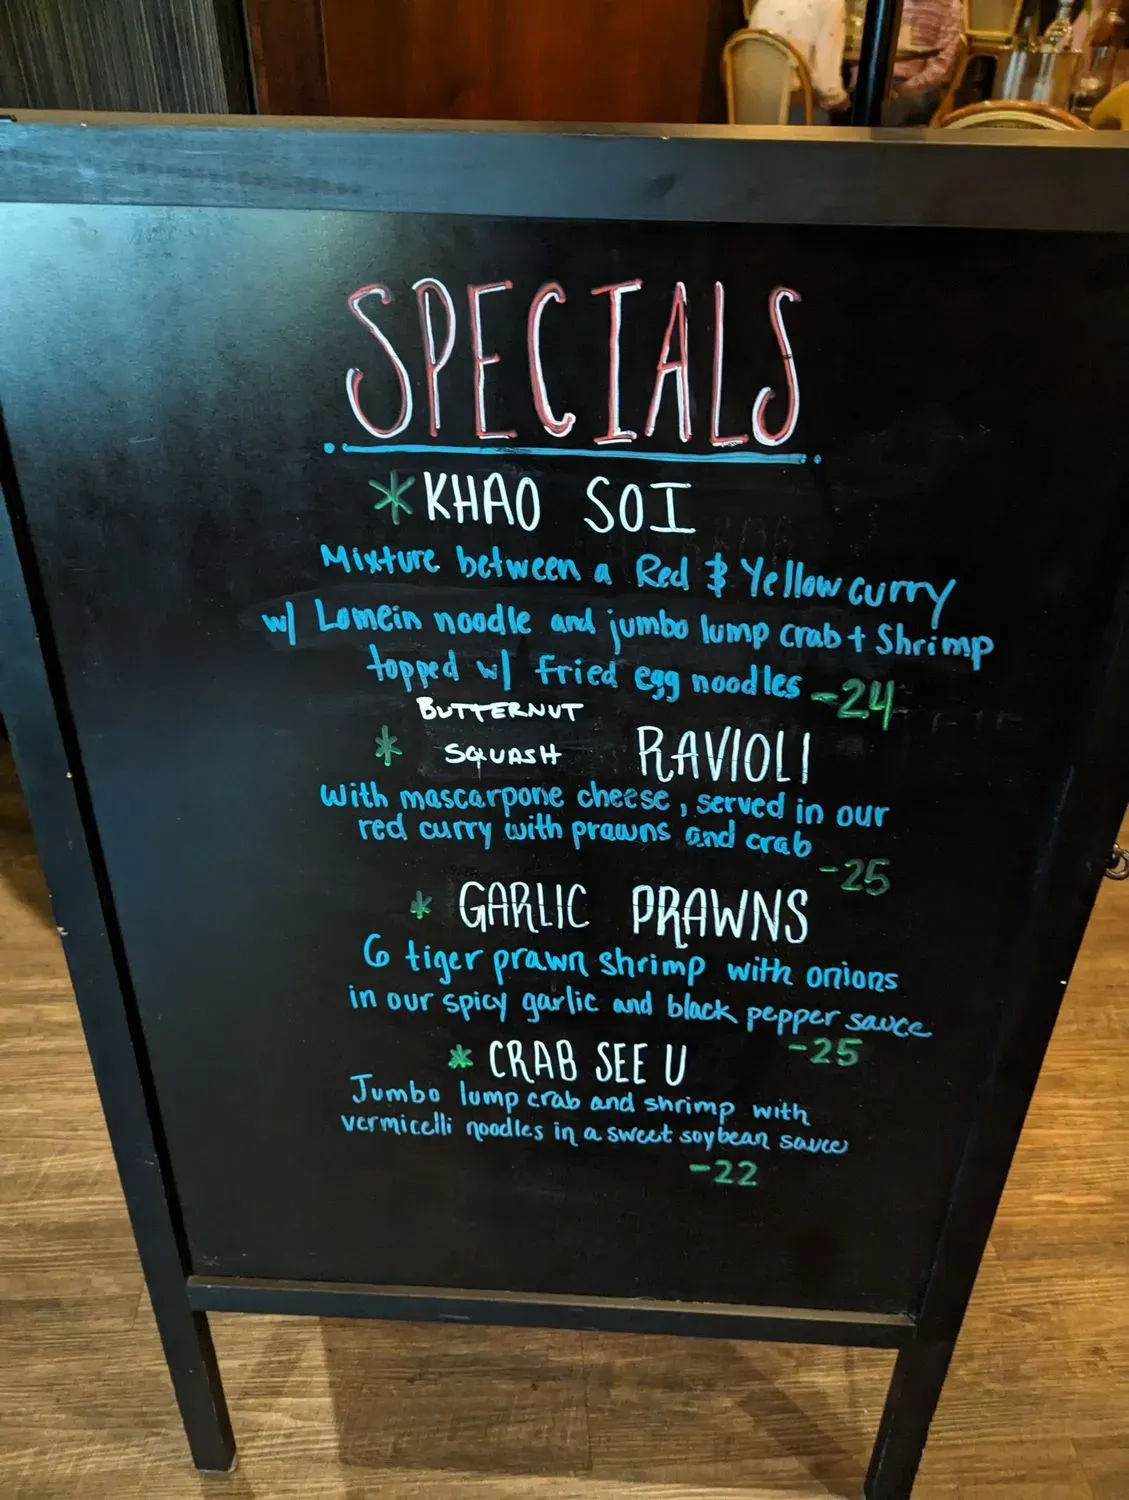 SPECIALS
* KHAO SOI
Mixture between a Red & Yellow curry
w/ Lomein noodle and jumbo lump crab + Shrimp
topped w/ fried egg noodles -24
BUTTERNUT
* SQUASH RAVIOLI
with mascarpone cheese, served in our
red curry with prawns and crab
-25
* GARLIC PRAWNS
6 tiger prawn shrimp with onions
in our spicy garlic and black pepper sauce
-25
* CRAB SEE U
Jumbo lump crab and shrimp with
vermicelli noodles in a sweet soybean sauce
-22